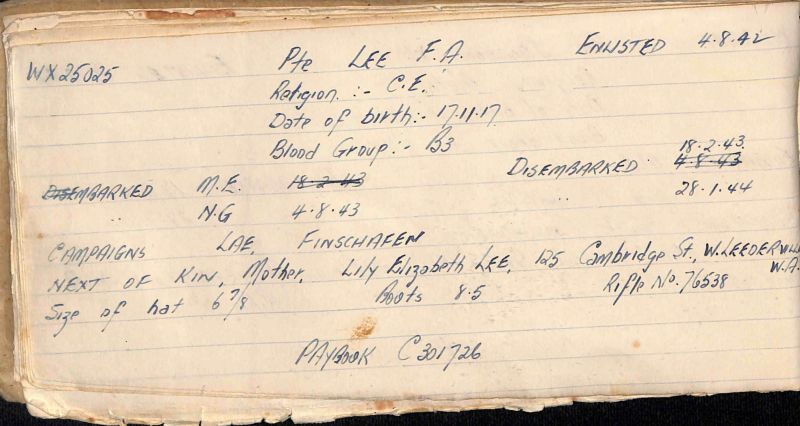 WX25025 Pte LEE F.A. ENLISTED 4.8.42
Religion :- C.E.
Date of birth:- 17.11.17
Blood Group:- B3
18.2.43
DISEMBARKED M.E. 18.2.43 DISEMBARKED 4.8.43
" N.G 4.8.43 28.1.44
CAMPAIGNS LAE, FINSCHAFEN
NEXT OF KIN, Mother, Lily Elizabeth LEE, 125 Cambridge St., W.LEEDERVILLE
W.A.
Size of hat 6 7/8 Boots 8.5 Rifle No. 76538
PAYBOOK C301726